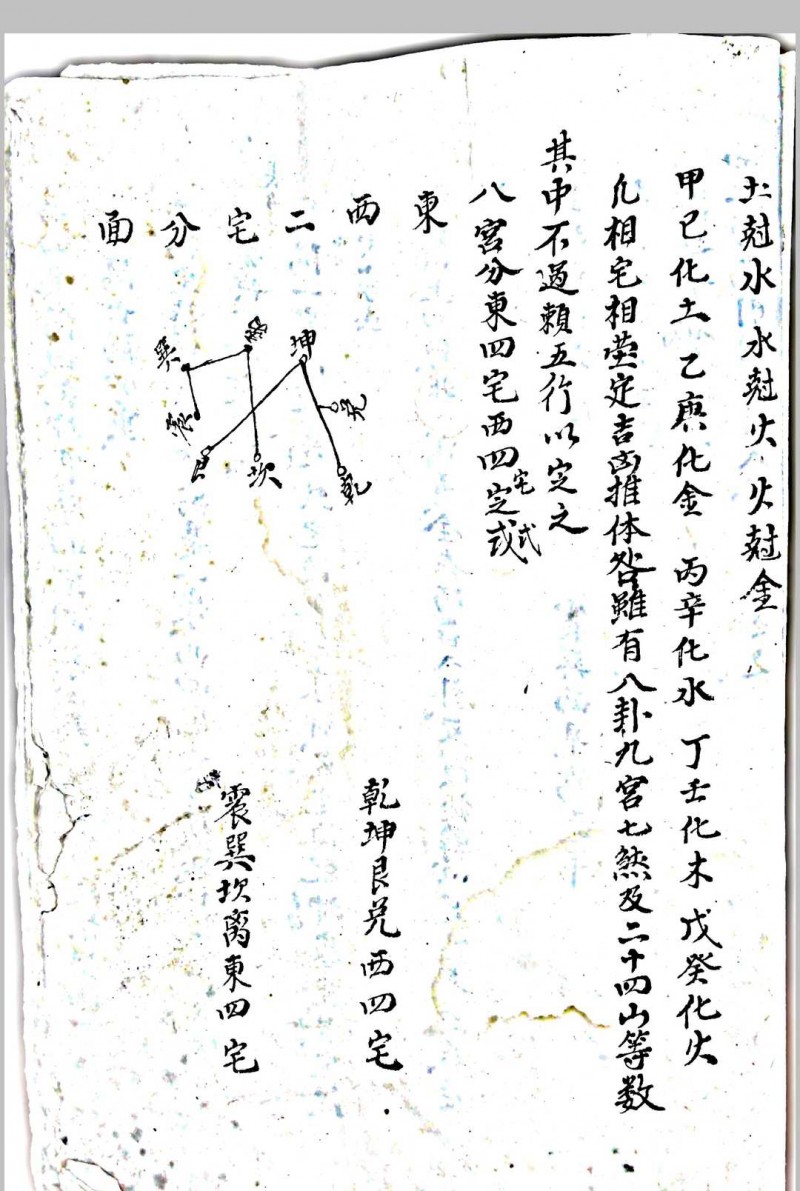 土尅水 水尅火 火尅金
甲己化土 乙庚化金 丙辛化水 丁壬化木 戊癸化火
凡相宅相塋定吉凶推体咎雖有八卦九宮七煞及二十四山等数
其中不過賴五行以定之
八宮分東四宅西四宅定式
東西二宅分面
坤
離
巽
震
兌
艮
坎
乾
乾坤艮兌西四宅
震巽坎离東四宅